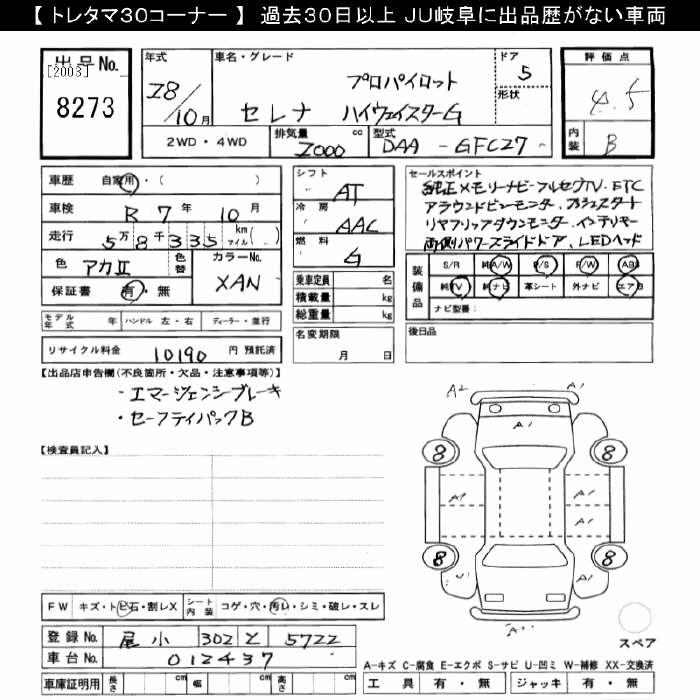 【トレタマ30コーナー】 過去30日以上 JU岐阜に出品歴がない車両
出品No. [2003] 8273
年式 28/10月
車名・グレード プロパイロット セレナ ハイウェイスターG
ドア 5
形状
評価点 4.5
内装 B
2WD・4WD 排気量 2000 cc 型式 DAA - GFC27
車歴 自家用・( )
車検 R 7年 10月
走行 5万8千335 km マイル( )
色 アカⅡ 色替 カラーNo. XAN
保証書 有・無
モデル年式 年 ハンドル 左・右 ディーラー・並行
リサイクル料金 10190 円 預託済
シフト AT
冷房 AAC
燃料 G
乗車定員 名
積載量 kg
総重量 kg
名変期限 月 日
セールスポイント
純正メモリーナビ・フルセグTV、ETC
アラウンドビューモニター、プッシュスタート
リヤフリップダウンモニター、インテリキー
両側パワースライドドア、LEDヘッド
装備品 S/R 純A/W P/S P/W ABS
純TV 純ナビ 革シート 外ナビ エアB
ナビ型番:
後日品
【出品店申告欄(不良箇所・欠品・注意事項等)】
・エマージェンシーブレーキ
・セーフティパックB
【検査員記入】
A2 A1
A1
8 8
A1 A1
A1 A1
8 8
U1 A1
スペア
FW キズ・トビ石・割レX シート内装 コゲ・穴・汚レ・シミ・破レ・スレ
登録No. 尾小 302 と 5722
車台No. 012437
車庫証明用 長さ cm 幅 cm 高さ cm
A-キズ C-腐食 E-エクボ S-サビ U-凹ミ W-補修 XX-交換済
工具 有・無 ジャッキ 有・無